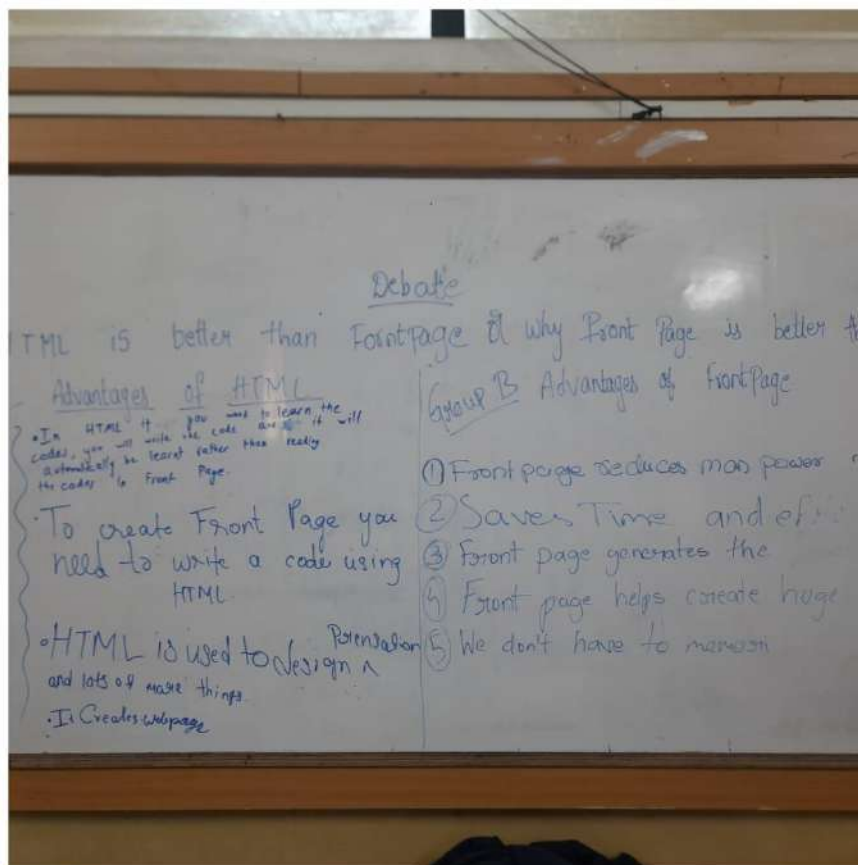 Debate
HTML is better than ForntPage & why Front Page is better
Advantages of HTML
• In HTML if you want to learn the
codes, you will write the code and it will
automatically be learnt rather than reading
the codes in Front Page.
• To create Front Page you
need to write a code using
HTML.
• HTML is used to design ^ Prensation
and lots of more things.
• It Creates webpage
Group B Advantages of FrontPage
① Frontpage reduces man power
② Saves Time and
③ Front page generates the
④ Front page helps create huge
⑤ We don't have to